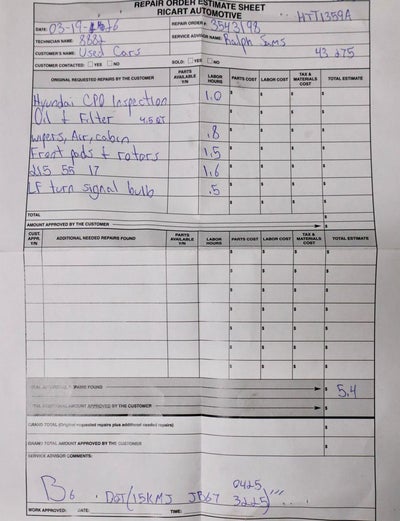 REPAIR ORDER ESTIMATE SHEET
RICART AUTOMOTIVE
HTJ1359A
DATE: 03-19-26
REPAIR ORDER # 3543198
TECHNICIAN NAME: 8881
SERVICE ADVISOR NAME: Ralph Sams
CUSTOMER'S NAME: Used Cars
43 275
CUSTOMER CONTACTED: YES NO
SOLD: YES NO
ORIGINAL REQUESTED REPAIRS BY THE CUSTOMER PARTS AVAILABLE Y/N LABOR HOURS PARTS COST LABOR COST TAX & MATERIALS COST TOTAL ESTIMATE
Hyundai CPO Inspection 1.0 $ $ $ $
Oil & Filter 4.5 QT $ $ $ $
wipers, Air, cabin .8 $ $ $ $
Front pads & rotors 1.5 $ $ $ $
215 55 17 1.6 $ $ $ $
LF turn signal bulb .5 $ $ $ $
TOTAL
AMOUNT APPROVED BY THE CUSTOMER $
CUST. APPR. Y/N ADDITIONAL NEEDED REPAIRS FOUND PARTS AVAILABLE Y/N LABOR HOURS PARTS COST LABOR COST TAX & MATERIALS COST TOTAL ESTIMATE
$ $ $ $
$ $ $ $
$ $ $ $
$ $ $ $
$ $ $ $
$ $ $ $
$ $ $ $
REPAIRS FOUND $ 5.4
AMOUNT APPROVED BY THE CUSTOMER $
GRAND TOTAL (Original requested repairs plus additional needed repairs) $
GRAND TOTAL AMOUNT APPROVED BY THE CUSTOMER $
SERVICE ADVISOR COMMENTS:
0425
B6 . DOT (15KMJ JB67 3225
WORK APPROVED: DATE: TIME: